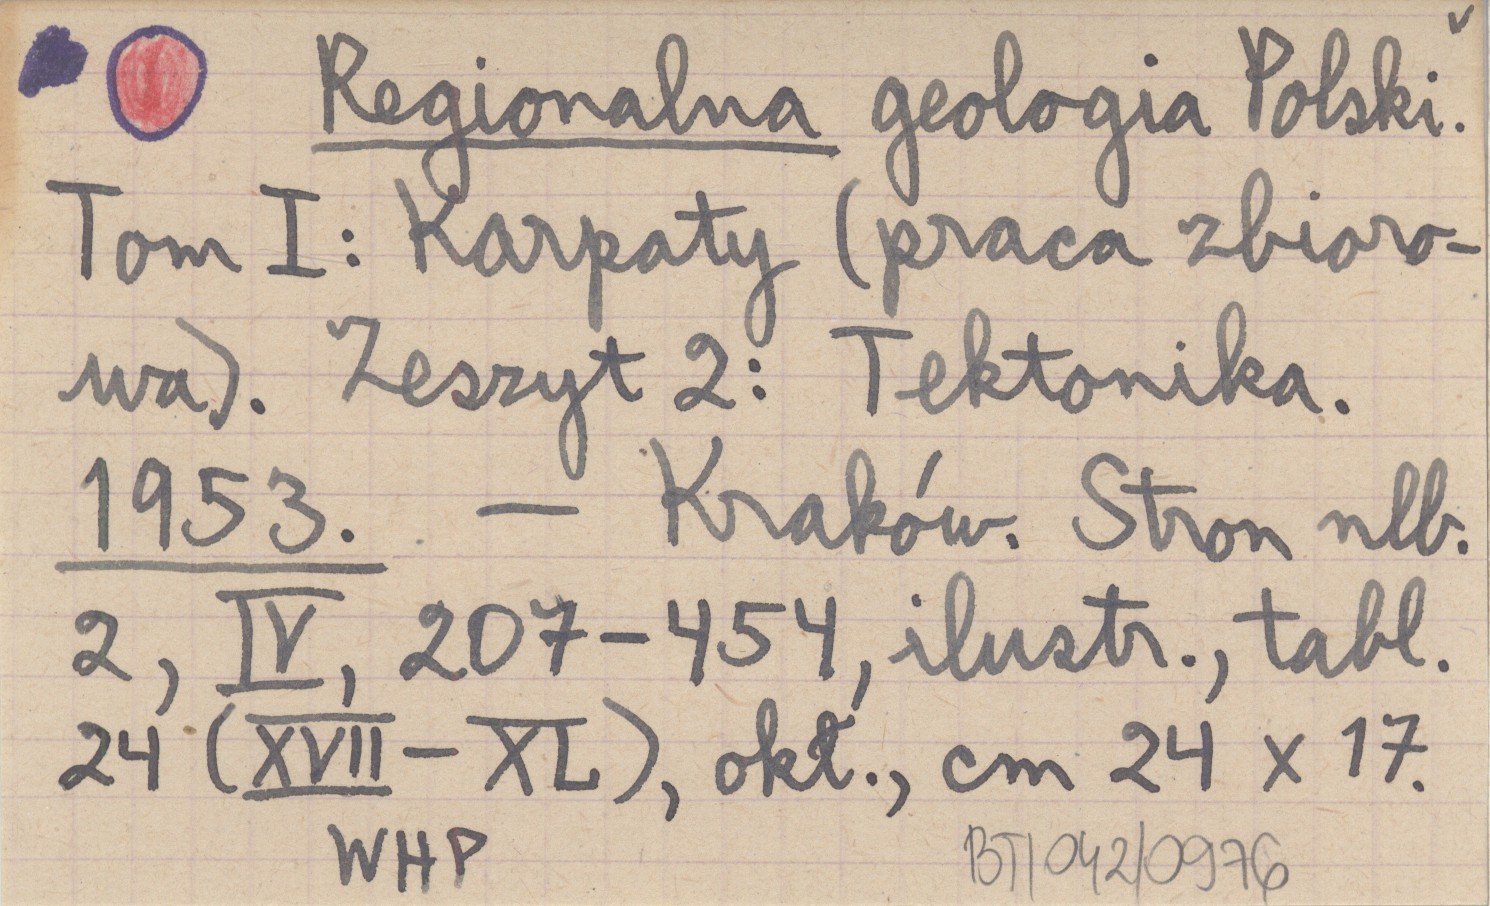 Regionalna geologia Polski.
Tom I: Karpaty (praca zbioro-
wa). Zeszyt 2: Tektonika.
1953. — Kraków. Stron nlb.
2, IV, 207-454, ilustr., tabl.
24 (XVII - XL), okł., cm 24 x 17.
WHP
BT/042/0976